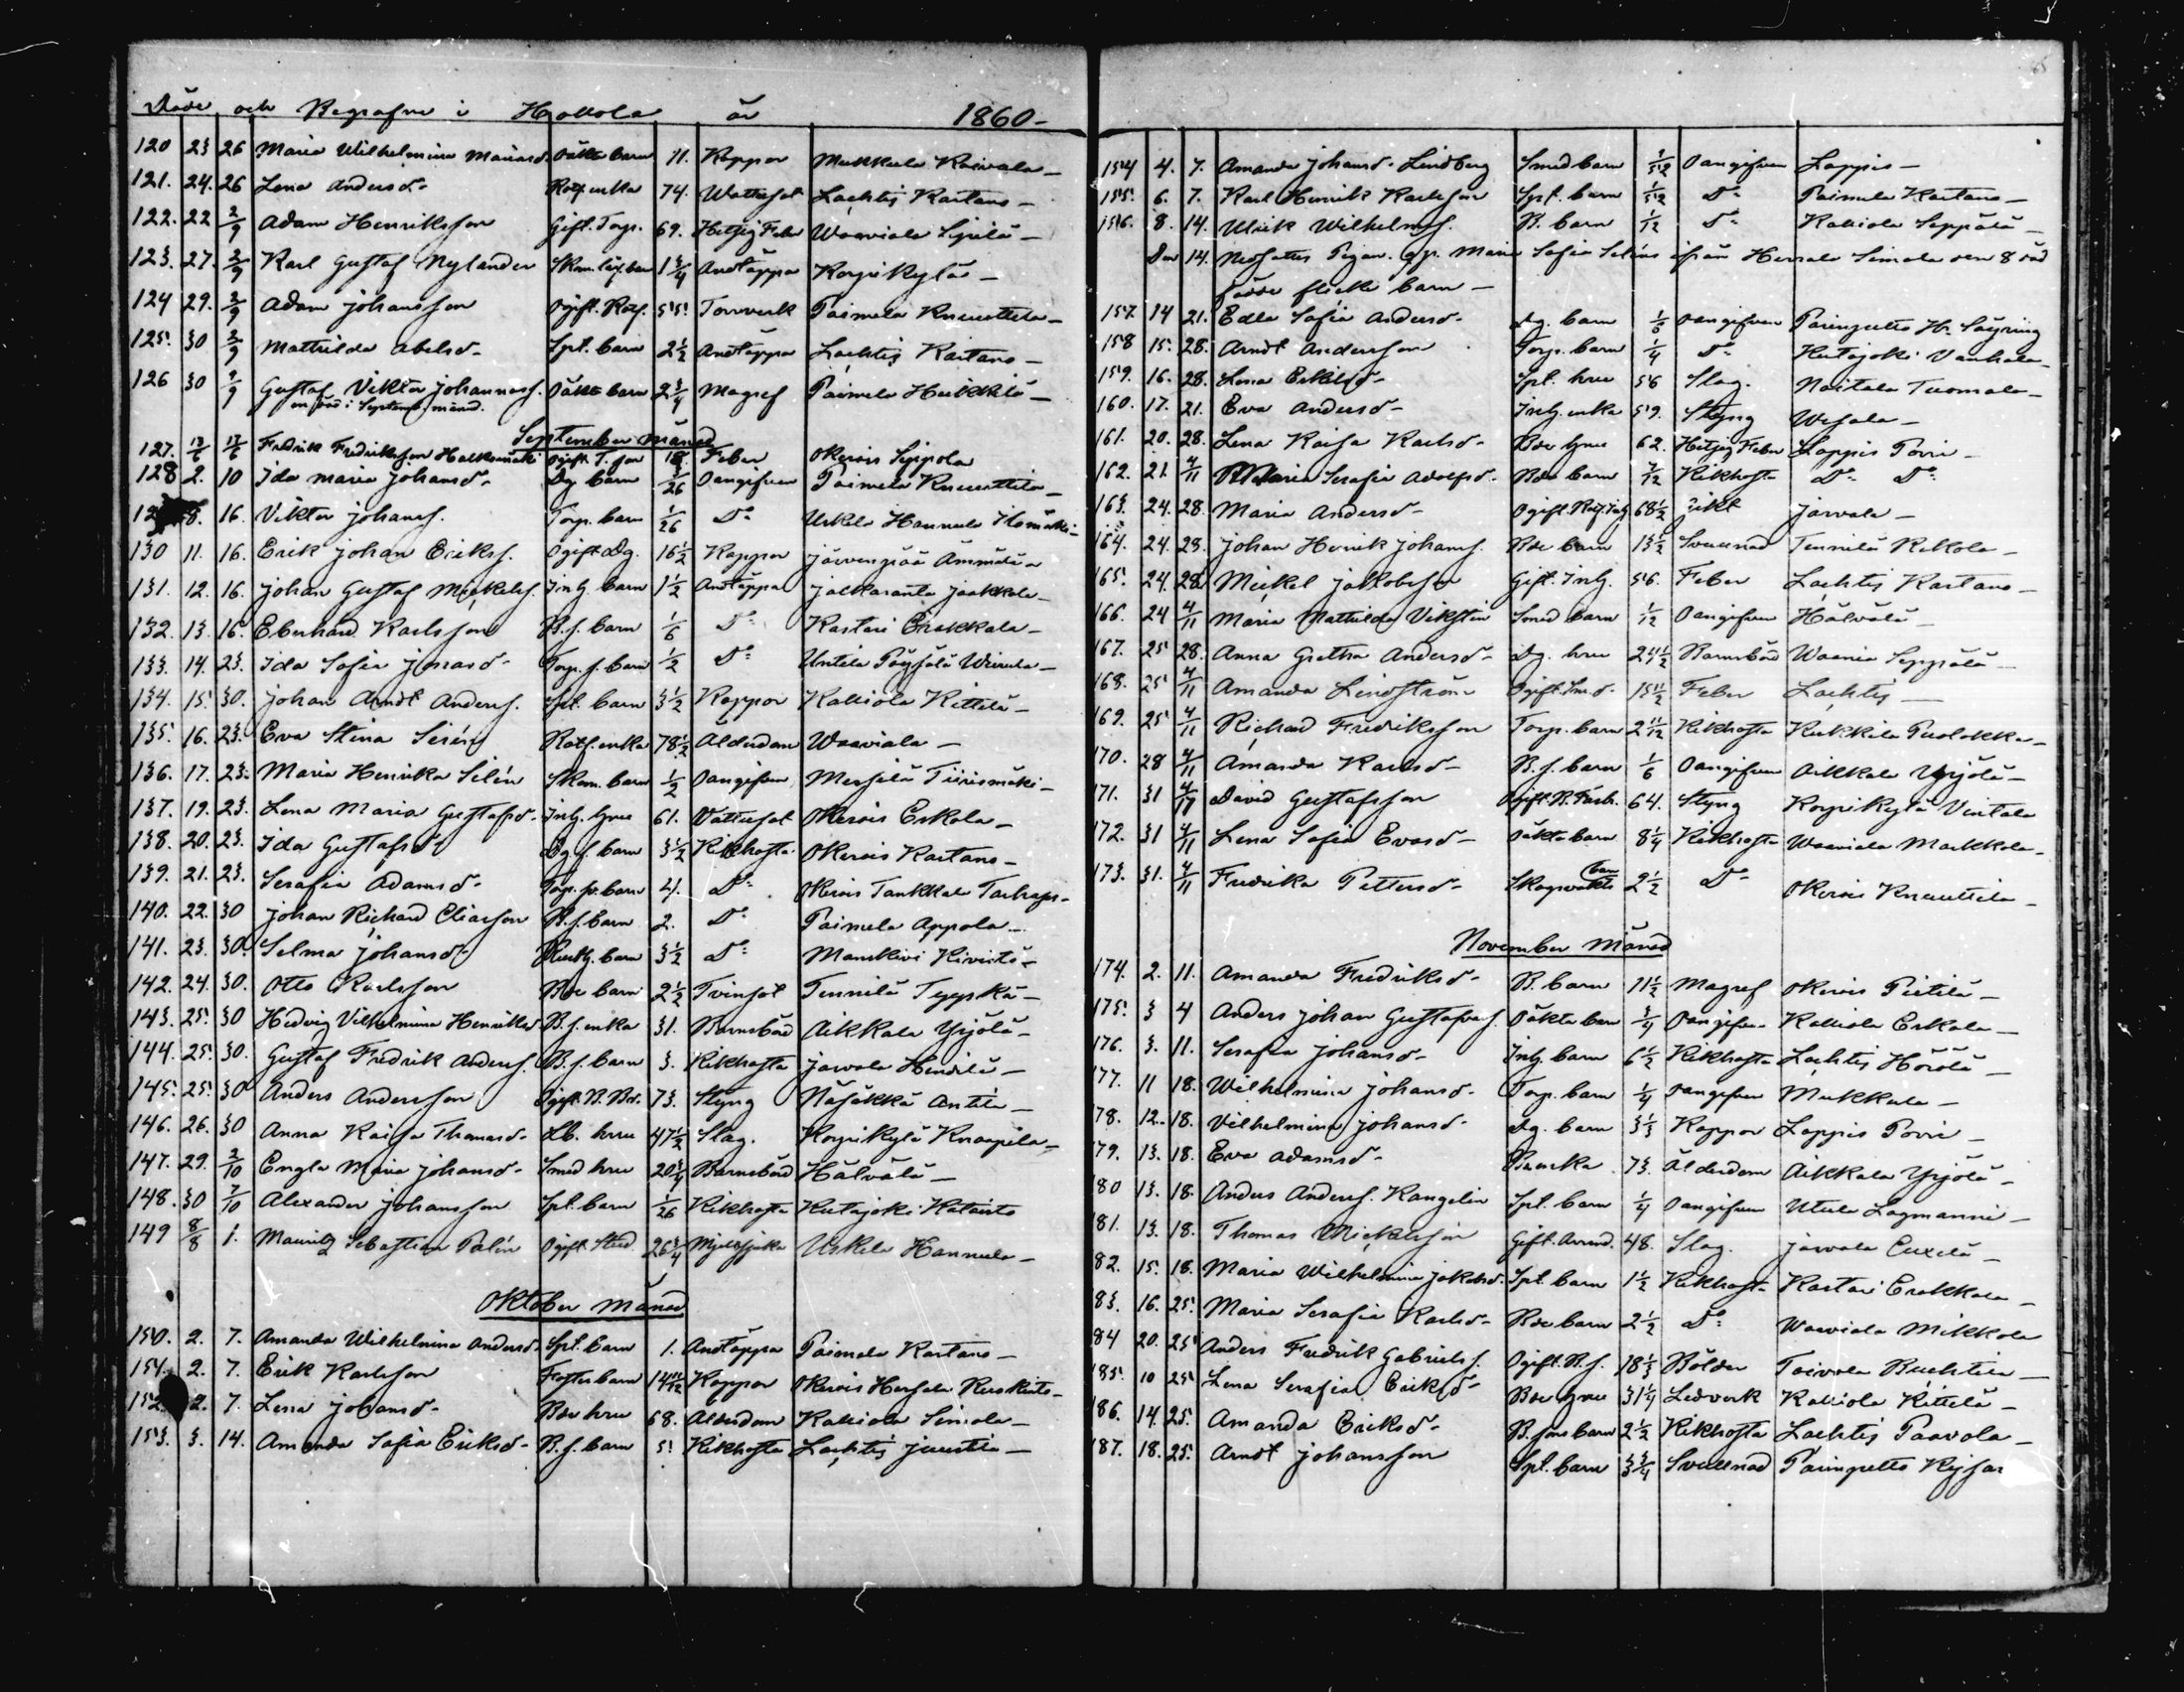 Döde och Begrafne i Hollola år 1860-
120 23 26 Maria Wilhelmina Mariasd. Oäkta barn 11. Koppor Mukkula Kaivala -
121. 24. 26 Lena Andersd. Rotf. enka 74. Wattusot Lachtis Kartano -
122. 22 2/9 Adam Henriksson Gift. Torp. 69. Hetsig Feber Waaviala Sipilä -
123. 27. 2/9 Karl Gustaf Nylander 1 3/4 Andtäppa Korpikylä -
124 29. 2/9 Adam Johansson Ogift. Rotf. 55. Torrverk Paimela Knuuttila -
125. 30 2/9 Mathilda Abelsd. Spl. barn 2 1/2 Andtäppa Lachtis Kartano -
126 30 9/9 Gustaf Viktor Johannas. Oäkta barn 2 3/4 Magref Paimela Heikkilä -
en död i September månad.
September månad
127. Fredrik Fredriksson Halkomäki Ogift T. son 18 Feber Okerois Seppola
128 2. 10 Ida Maria Johansd. Dg. barn 3/26 Oangifven Paimela Knuuttila -
8. 16. Viktor Johans. Torp. barn 1/26 Do Uskila Hannula Ilomäki -
130 11. 16. Erik Johan Eriks. Ogift Dg. 16 1/2 Koppor Järvenpää Ämmälä -
131. 12. 16. Johan Gustaf Mickels. Inh. barn 1 1/2 Andtäppa Jalkaranta Jaakkola -
132. 13. 16. Eberhard Karlsson B. s. barn 1/6 Do Kastari Erakkala -
133. 14. 23. Ida Sofia Jonasd. Torp. s. barn 1/2 Do Untila Pöysälä Weivula -
134. 15. 30. Johan Arndt Anders. Spl. barn 3 1/2 Koppor Kalliola Kittilä -
135. 16. 23. Eva Stina Serén Rotf. enka 78 1/2 Ålderdom Waaviala -
136. 17. 23. Maria Henrika Silén Skom. barn 1/2 Oangifven Messilä Tiirismäki -
137. 19. 23. Lena Maria Gustafsd. Inh. hru 61. Vattusot Okerois Erkola -
138. 20. 23. Ida Gustafsd. Dg. s. barn 3 1/2 Kikhosta Okerois Kartano -
139. 21. 23. Serafia Adamsd. Torp. barn 4. Do Okerois Tankkala
140. 22. 30 Johan Richard Eliasson B. s. barn 2. Do Paimela Appola -
141. 23. 30. Selma Johansd. barn 3 1/2 Do Manskivi Kivistö -
142. 24. 30. Otto Karlsson Bde barn 2 1/2 Tvinsot Tennilä Tyyskä -
143. 25. 30 Hedvig Vilhelmina Henriksd. B. s. enka 31. Barnsbörd Aikkala Yrjölä -
144. 25. 30. Gustaf Fredrik Anders. B. s. barn 3. Kikhosta Jarvala Heinilä -
145. 25. 30 Anders Andersson Ogift. B. Bd. 73. Styng Nääkkä Antila -
146. 26. 30 Anna Kaisa Thomasd. Lb. hru 47 1/2 Slag. Korpikylä Knaapila -
147. 29. 2/10 Engla Maria Johansd. Smed hru 20 3/4 Barnsbörd Hälvälä -
148. 30 7/10 Alexander Johansson Spl. barn 1/26 Kikhosta Kutajoki Kataisto
149 8/8 1. Mauritz Sebastian Palén Ogift Stud 26 3/4 Mjeltsjuka Uskila Hannula -
Oktober månad
150. 2. 7. Amanda Wilhelmina Andersd. Spl. barn 1. Andtäppa Paimela Kartano -
151. 2. 7. Erik Karlsson Foster barn 14 11/12 Koppor Okerois Hersala Ruskinto -
152. 2. 7. Lena Johansd. Bde hru 68. Ålderdom Kalliola Simola -
153. 3. 14. Amanda Sofia Eriksd. B. s. barn 5. Kikhosta Lachtis Juustila -
154 4. 7. Amanda Johansd. Lindberg Smed barn 1/52 Oangifven Lappis -
155. 6. 7. Karl Henrik Karlsson Spl. barn 1/52 Do Paimela Kartano -
156. 8. 14. Ulrik Wilhelms. B. barn 1/12 Do Kalliola Seppälä -
Den 14. Nedsattes Pigan Maria Sofia Seléns ifrån Herrala Simola den 8 död
födde flicke barn -
157. 14 21. Edla Sofia Andersd. Dg. barn 1/6 Oangifven Parinpelto
158 15. 28. Arndt Andersson Torp. barn 1/4 Do Kutajoki Vanhala -
159. 16. 28. Lena Eriksd. Spl. hru 56 Slag. Noitala Tuomala -
160. 17. 21. Eva Andersd. Inh. enka 59. Styng Wesala -
161. 20. 28. Lena Kaisa Karlsd. Bde hru 62. Hetsig Feber Lappis Porri -
162. 21 4/11 Maria Serafia Adolfsd. Bde barn 7/12 Kikhosta Do Do
163. 24. 28. Maria Andersd. Ogift. Rotf. 68 1/2 Gikt Jarvala -
164. 24. 28. Johan Henrik Johans. Bde barn 13 1/2 Svullnad Tennilä Rekola -
165. 24. 28. Mickel Jakobsson Gift. Inh. 56. Feber Lachtis Kartano -
166. 24 4/11 Maria Mathilda Vikstén Smed barn 1/12 Oangifven Hälvälä -
167. 25 28. Anna Gretha Andersd. Dg. hru 24 1/2 Barnsbörd Waania Seppälä -
168. 25 4/11 Amanda Lindström Ogift. Sm. d. 15 1/2 Feber Lachtis -
169. 25 4/11 Richard Fredriksson Torp. barn 2 11/12 Kikhosta Kukkila Puolakka -
170. 28 4/11 Amanda Karlsd. B. s. barn 1/6 Oangifven Aikkala Yrjölä -
171. 31 4/11 David Gustafsson Ogift. B. Farb. 64. Styng Korpikylä Vintala
172. 31 4/11 Lena Sofia Evasd. Oäkta barn 8 1/4 Kikhosta Waaviala Markkola -
173. 31. 4/11 Fredrika Pettersd. Skogsvakts barn 2 1/2 Do Okerois Knuuttila -
November månad
174. 2. 11. Amanda Fredriksd. B. barn 11 1/2 Magref Okerois Pietilä -
175. 3 4 Anders Johan Gustafvas. Oäkta barn 3/4 Oangifven Kalliola Erkola -
176. 3. 11. Serafia Johansd. Inh. barn 6 1/2 Kikhosta Lachtis Hörölä -
177. 11 18. Wilhelmina Johansd. Torp. barn 1/4 Oangifven Mukkula -
78. 12. 18. Vilhelmina Johansd. Dg. barn 3 1/3 Koppor Lappis Porri -
79. 13. 18. Eva Adamsd. 73. Ålderdom Aikkala Yrjölä -
80 13. 18. Anders Anders. Kangelin Spl. barn 1/4 Oangifven Utula Lagmanni -
81. 13. 18. Thomas Mickelsson Gift. Arrend. 48. Slag. Jarvala Euxelä -
82. 15. 18. Maria Wilhelmina Jakobsd. Spl. barn 1 1/2 Kikhosta Kastari Erakkala -
83. 16. 25. Maria Serafia Karlsd. Bde barn 2 1/2 Do Waaviala Mikkola
84 20. 25 Anders Fredrik Gabriels. Ogift. B. s. 18 1/3 Bölder Toivola Buchtila -
185. 10 25 Lena Serafia Eriksd. Bde hru 31 1/4 Ledverk Kalliola Kittilä -
186. 14. 25. Amanda Eriksd. B. sons barn 2 1/2 Kikhosta Lachtis Paavola -
187. 18. 25. Arndt Johansson Spl. barn 3 3/4 Svullnad Parinpelto